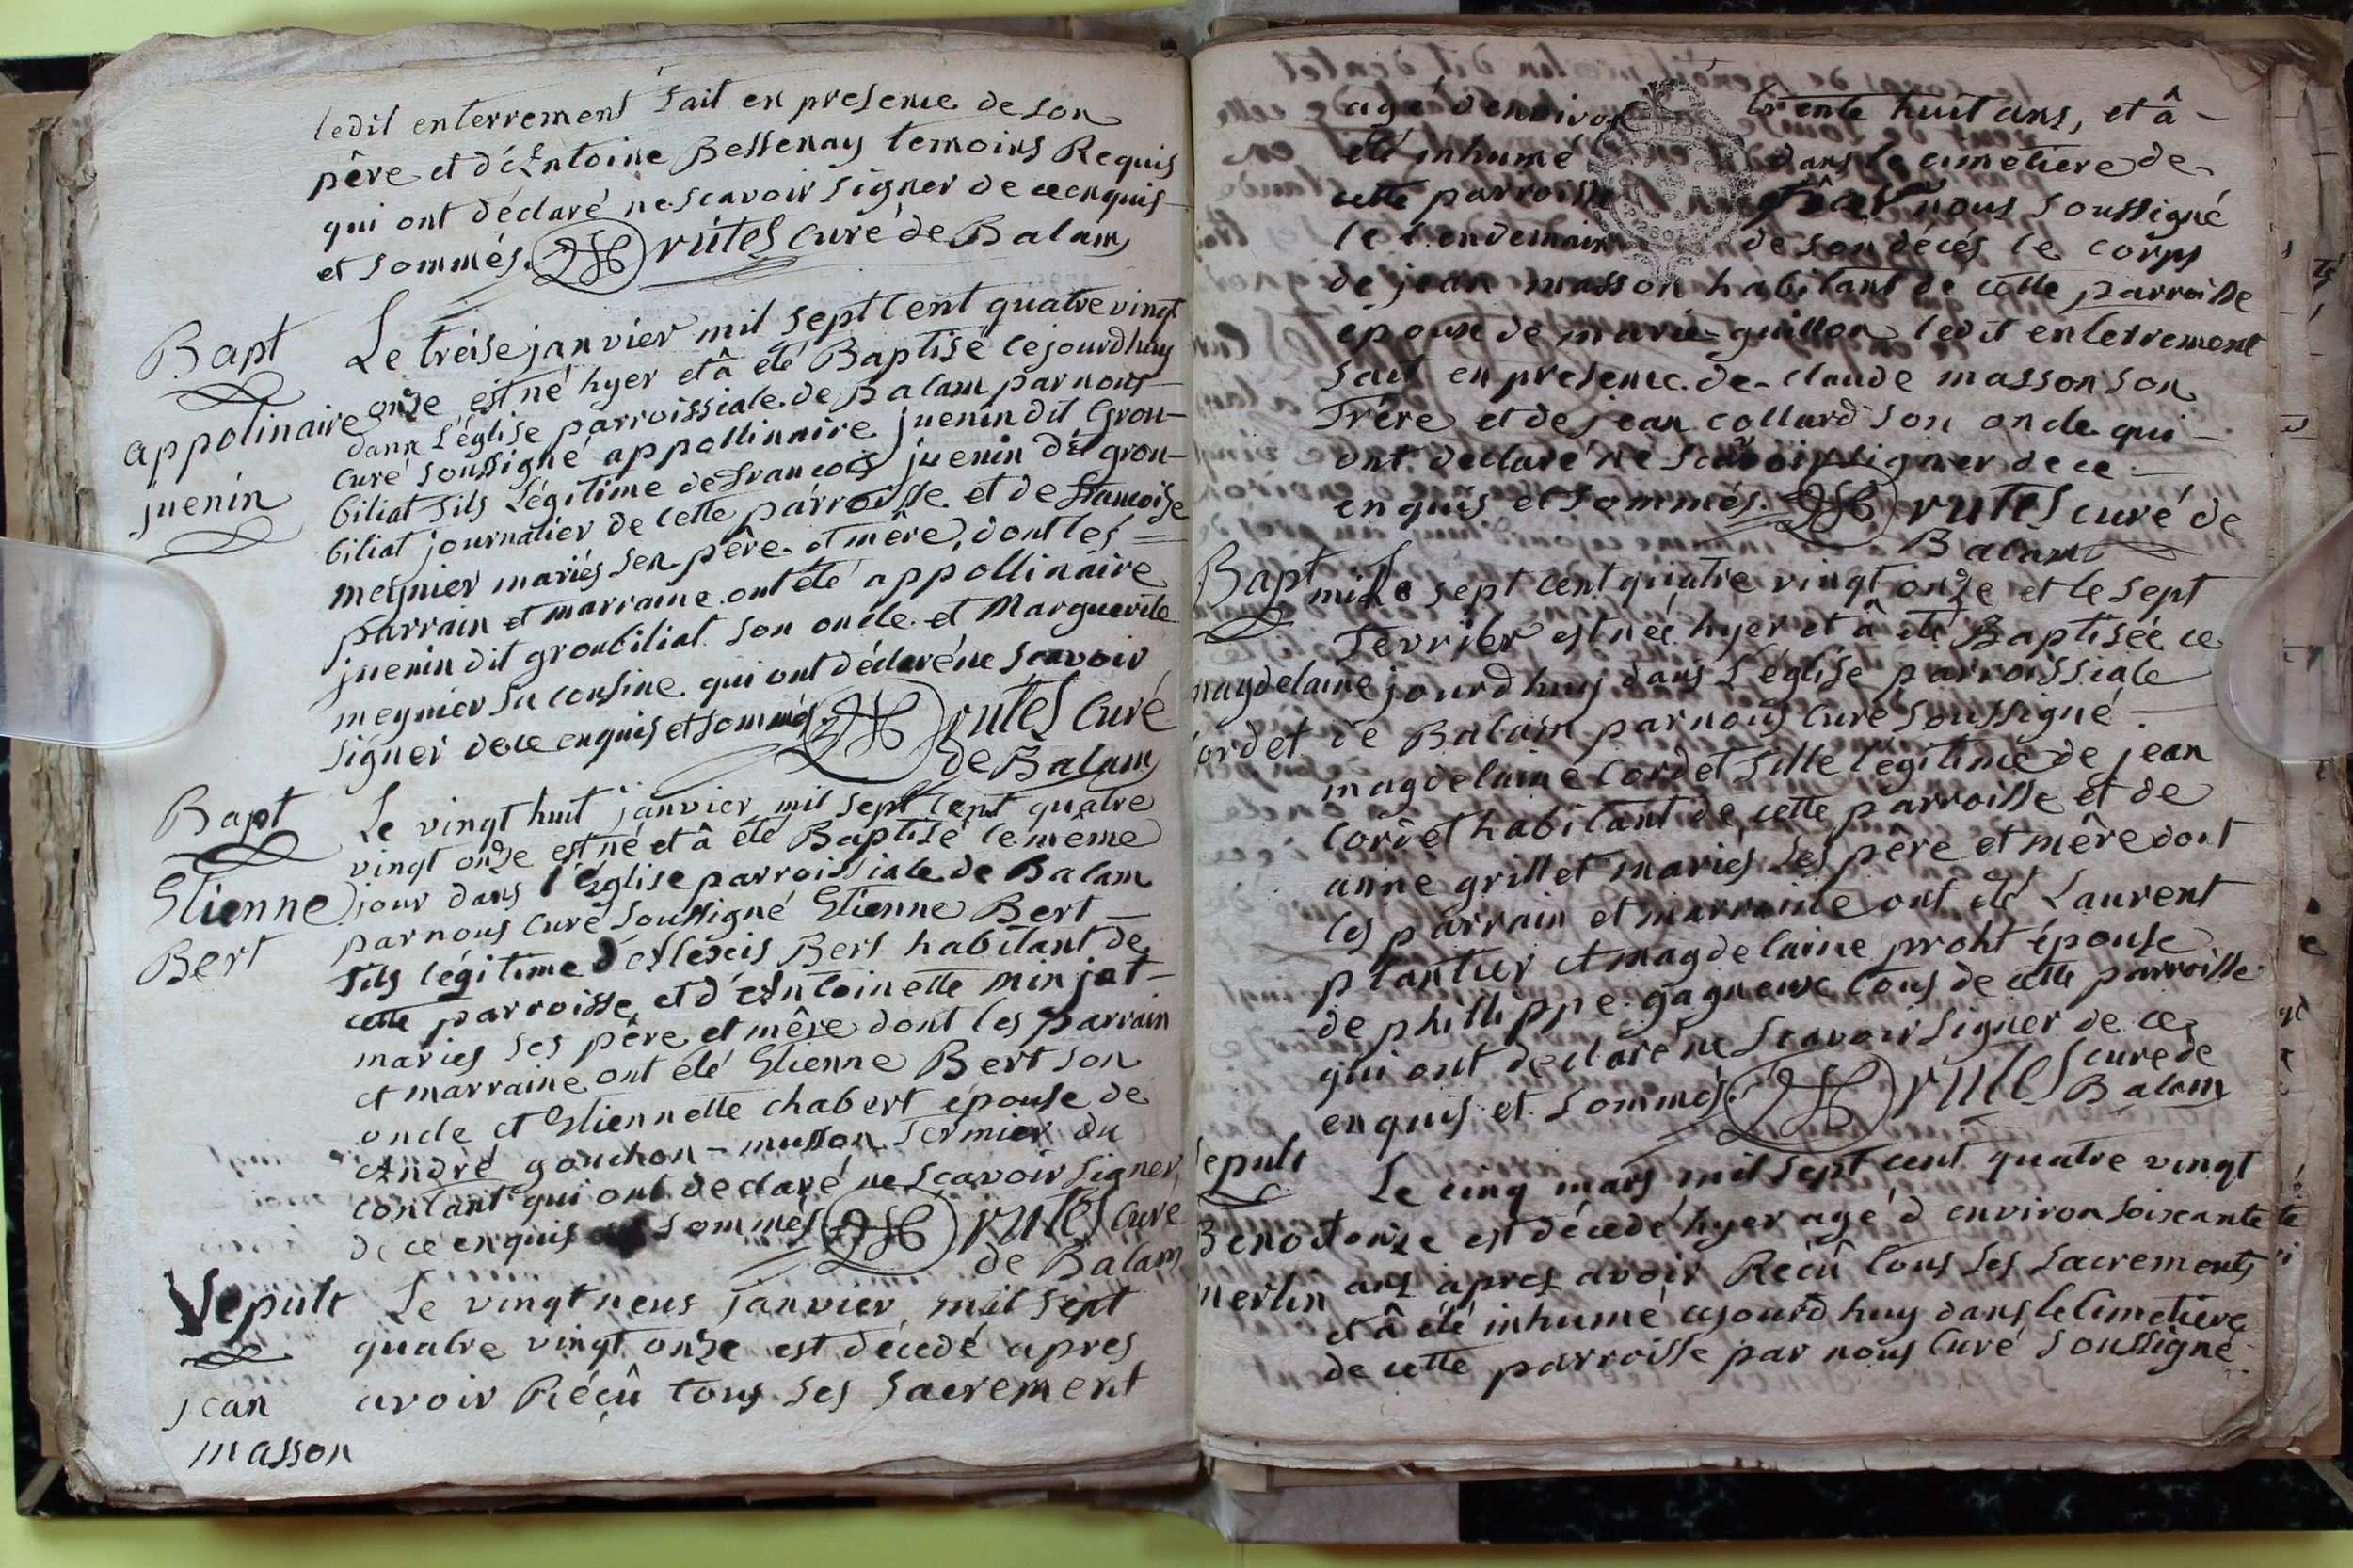 ledit enterrement fait en presence de son
père et d'Antoine Bessenay temoins Requis
qui ont déclaré ne scavoir signer de ce enquis
et sommés. Brutel curé de Balam
Bapt
appolinaire
juenin
Le treise janvier mil sept cent quatre vingt
onze est né hyer et â été Baptisé cejourdhuy
dann l'église parroissiale de Balam par nous
curé soussigné appollinaire juenin dit Grou-
biliat fils légitime de francois juenin dit grou-
biliat journalier de cette parroisse et de francoise
meynier mariés sen père et mère, dont les
parrain et marraine ont été appollinaire
juenin dit groubiliat son oncle et Marguerite
meynier sa cousine qui ont déclaré ne scavoir
signer de ce enquis et sommés Brutel curé
de Balam
Bapt
Etienne
Bert
Le vingt huit janvier mil sept cent quatre
vingt onze est né et â été Baptisé le même
jour dans l'Eglise parroissiale de Balam
par nous curé soussigné Etienne Bert
fils légitime d'Alexis Bert habitant de
cette parroisse et d'Antoinette minjat
mariés ses père et mère dont les parrain
et marraine ont été Etienne Bert son
oncle et Etiennette chabert épouse de
André gouchon-musson fermier du
contant qui ont declaré ne scavoir signer
de ce enquis sommés Brutel curé
de Balam
Sepult
jean
masson
Le vingt neuf janvier mil sept
quatre vingt onze est décédé apres
avoir Récû tous ses sacrement
agé d'environ trente huit ans, et â
été inhumé dans le cimetiere de
cette parroisse nous soussigné
le lendemain de son décés le corps
de jean masson habitant de cette parroisse
épouse de marie guillon ledit enterrement
fait en presence de claude masson son
frère et de jean collard son oncle qui
ont declaré ne scavoir signer de ce
enquis et sommés. Brutel curé de
Balam
Bapt
magdelaine
Cordet
mil sept cent quatre vingt onze et le sept
fevrier est née hyer et â été Baptisée ce
jourdhuy dans l'église parroissiale
de Balam par nous curé soussigné
magdelaine Cordet fille légitime de jean
Cordet habitant de cette parroisse et de
anne grillet mariés ses père et mère dont
les parrain et marraine ont été Laurent
plantier et magdelaine proht épouse
de phillippe gagneux tous de cette parroisse
qui ont declaré ne scavoir signer de ce
enquis et sommés. Brutel curé de
Balam
Sepult
Benoit
merlin
Le cinq mars mil sept cent quatre vingt
onze est décedé hyer agé d'environ soixante
ans apres avoir Récû tous ses sacrements
et â été inhumé cejourdhuy dans le cimetiere
de cette parroisse par nous curé soussigné